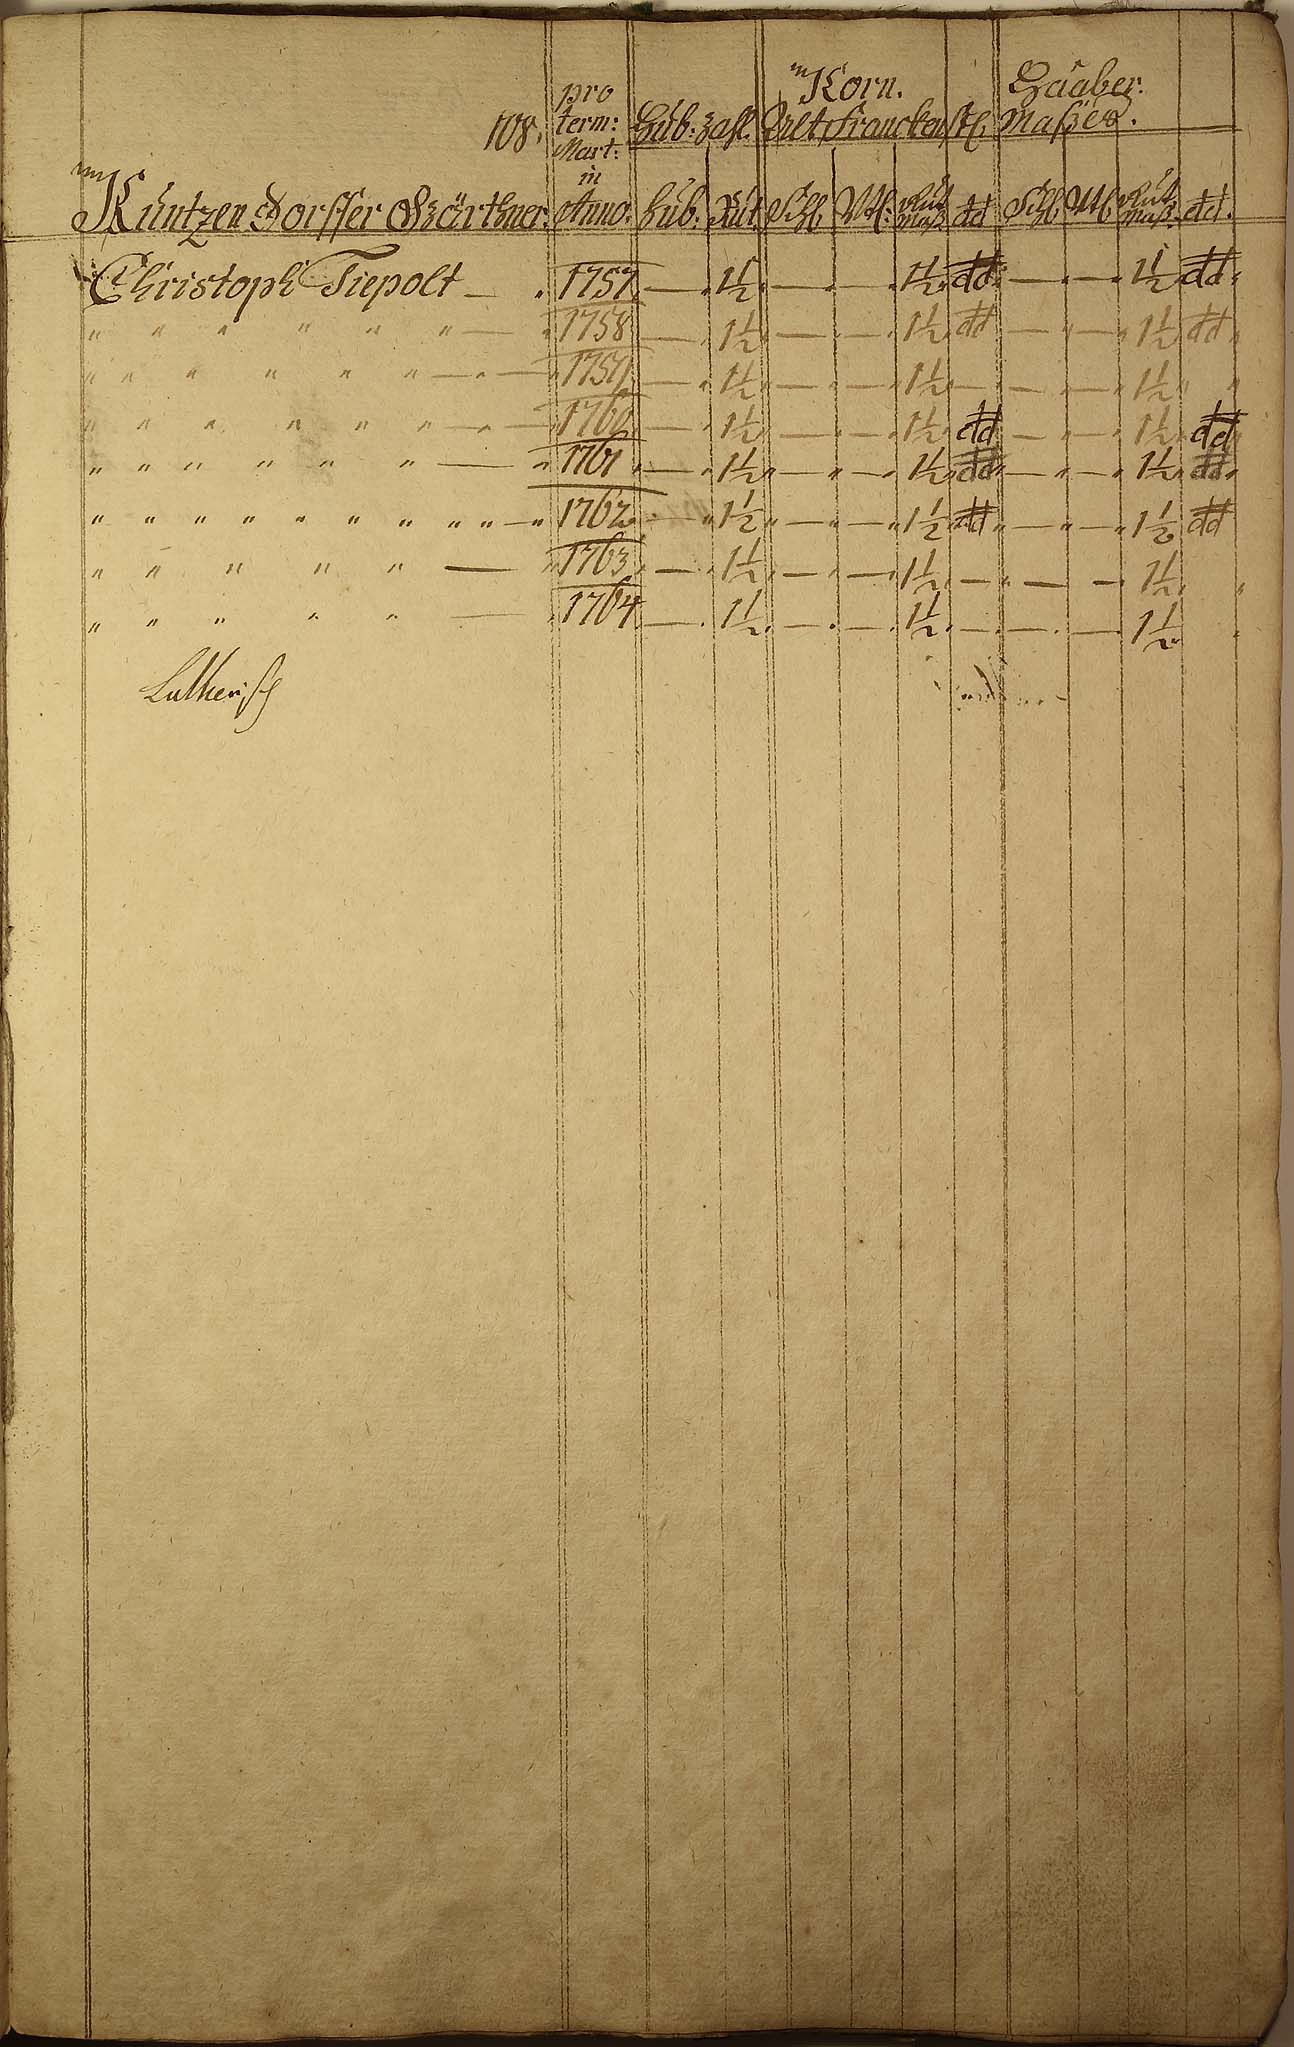 Korn. Haaber.
108. pro term: Mart: in Anno. Hub: Zahl. Alt Franckenst: Maßes.
Kuntzendorffer Gärthner. Hub: Rut. Schl Vtl: Rut maß dd Schl Vtl Rut maß. dd.
Christoph Tiepolt — . 1757 — " 1½ " — " — " 1½ dd — " — " 1½ dd "
" " " " " " — " 1758 — " 1½ " — " — " 1½ dd — " — " 1½ dd "
" " " " " " — " — " 1759 — " 1½ " — " — " 1½ — — " — " 1½ " "
" " " " " " — " — " 1760 — " 1½ " — " — " 1½ dd — " — " 1½ dd "
" " " " " " — " 1761 " — " 1½ " — " — " 1½ dd " — " — " 1½ dd "
" " " " " " " " " " — " 1762 " — " 1½ " — " — " 1½ dd " — " — " 1½ dd
" " " " " — " 1763 " — " 1½ " — " — " 1½ — " — — 1½ "
" " " " " — " 1764 — . 1½ . — . — . 1½ . — . — . — . 1½ .
Lutherisch